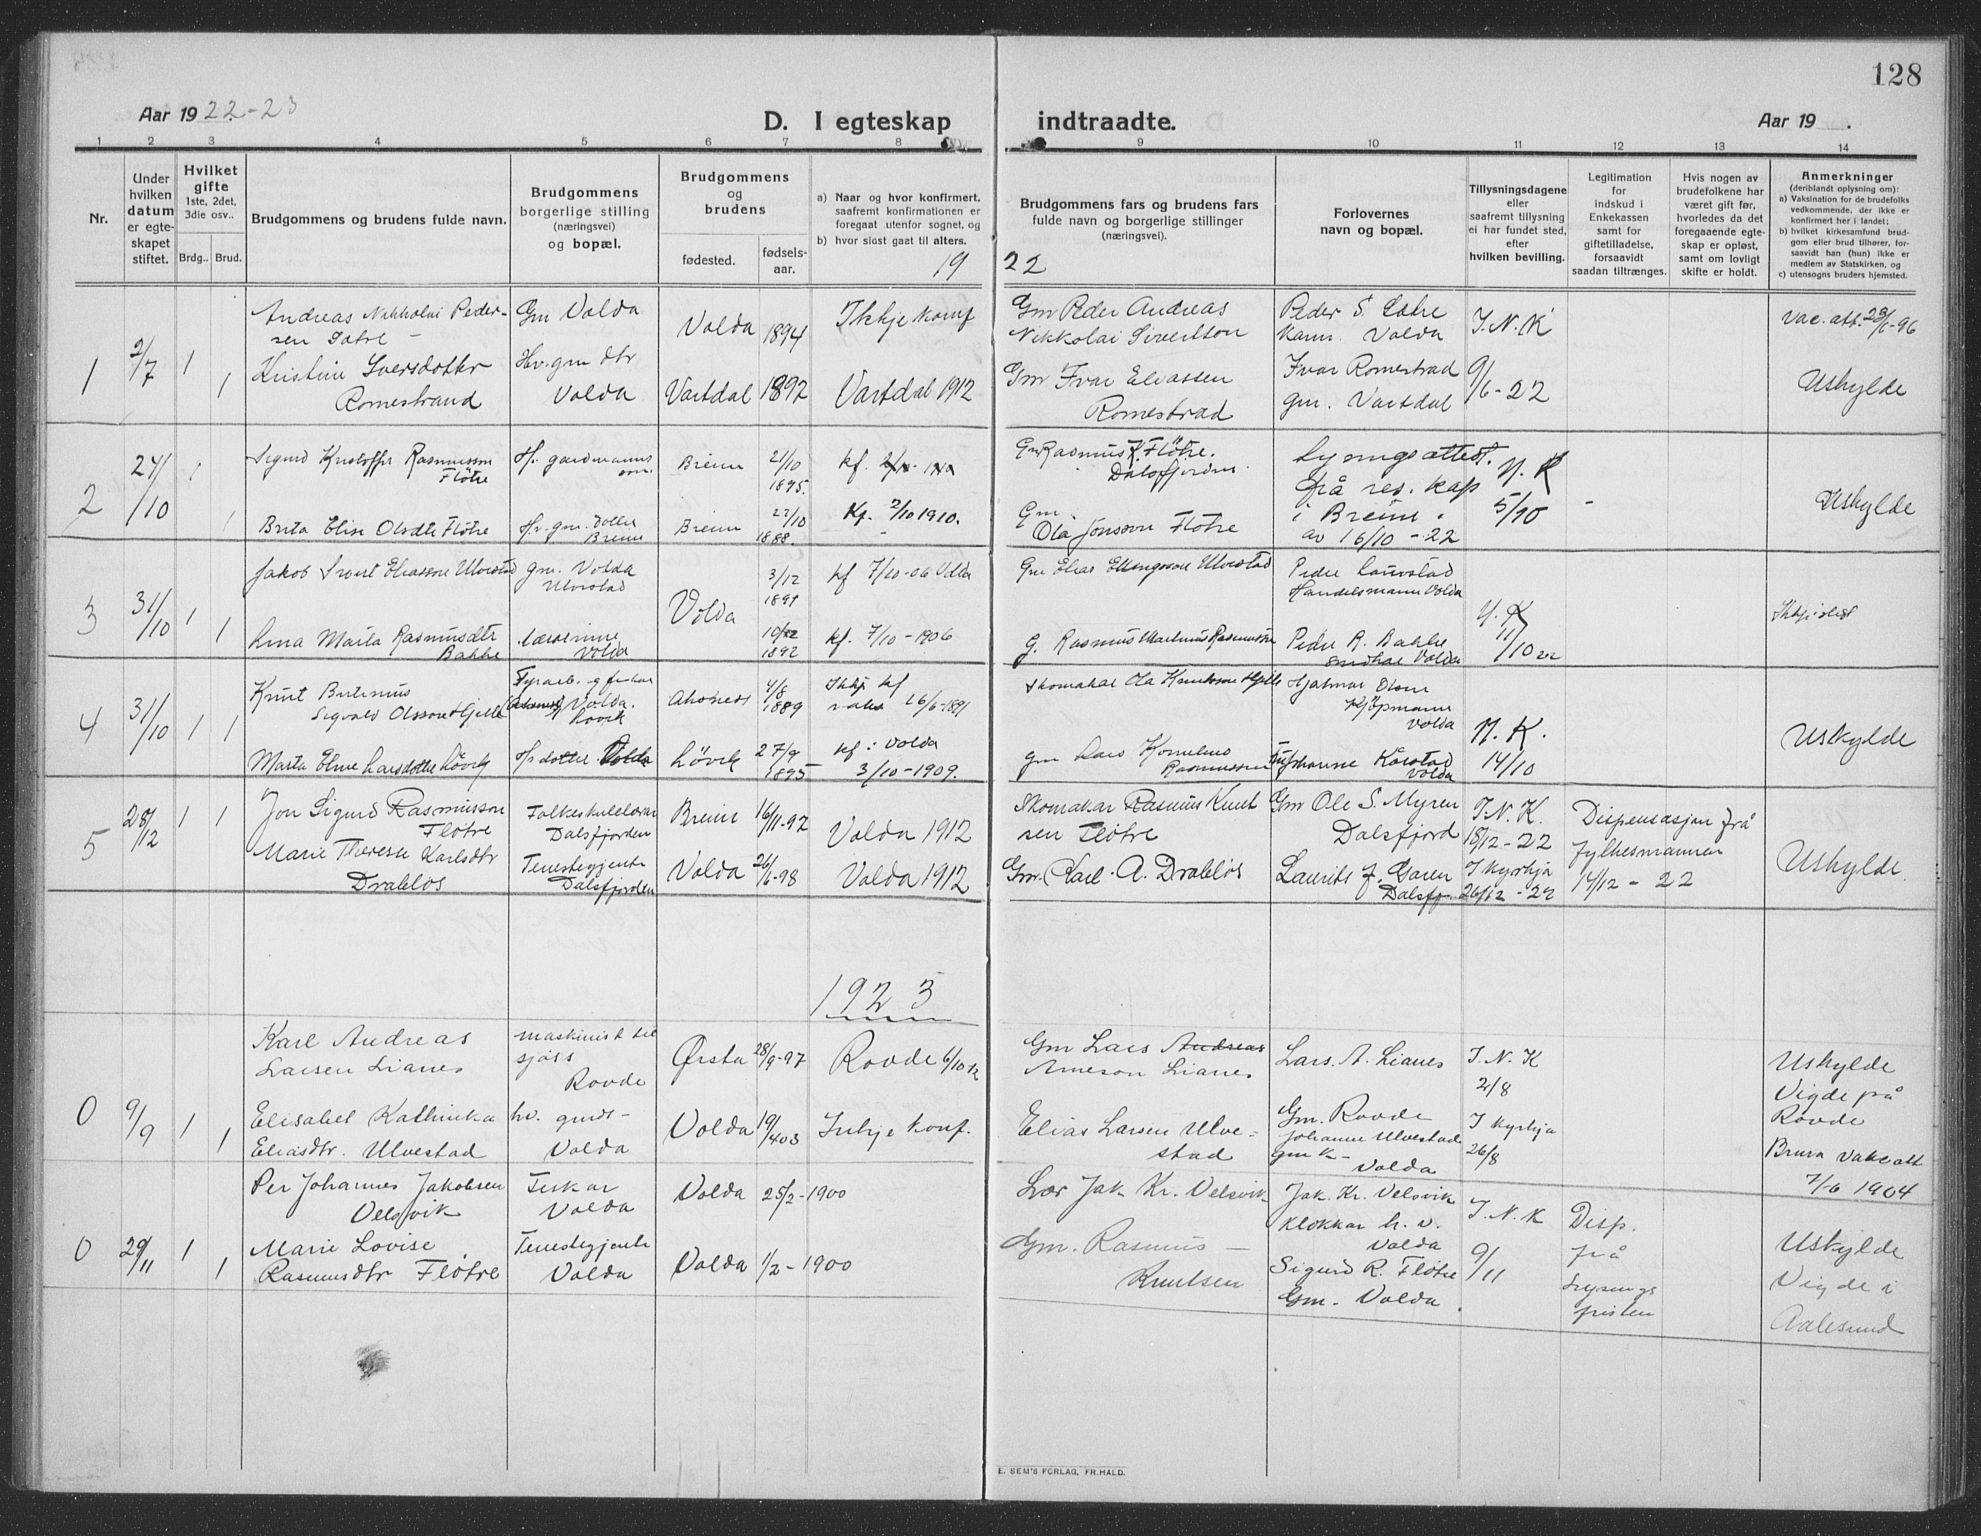 128
Aar 19 22-23
D. I egteskap
indtraadte.
Aar 19 .
1 2 3 4 5 6 7 8
9 10 11 12 13 14
Nr.
Under
hvilken
datum
er egte-
skapet
stiftet.
Hvilket
gifte
1ste, 2det,
3die osv..
Brdg.. Brud.
Brudgommens og brudens fulde navn.
Brudgommens
borgerlige stilling
(næringsvei)
og bopæl.
Brudgommens
og
brudens
fødested.
fødsels-
aar.
a) Naar og hvor konfirmert,
saafremt konfirmationen er
foregaat utenfor sognet, og
b) hvor sidst gaat til alters.
19 22
Brudgommens fars og brudens fars
fulde navn og borgerlige stillinger
(næringsvei).
Forlovernes
navn og bopæl.
Tillysningsdagene
eller
saafremt tillysning
ei har fundet sted,
efter
hvilken bevilling.
Legitimation
for
indskud i
Enkekassen
samt for
giftetilladelse,
forsaavidt
saadan tiltrænges.
Hvis nogen av
brudefolkene har
været gift før,
hvorledes da det
foregaaende egte-
skap er opløst,
samt om lovligt
skifte er holdt.
Anmerkninger
(deriblandt oplysning om):
a) Vaksination for de brudefolks
vedkommende, der ikke er
konfirmert her i landet;
b) hvilket kirkesamfund brud-
gom eller brud tilhører, for-
saavidt han (hun) ikke er
medlem av Statskirken, og
c) utensogns bruders hjemsted.
1 2/7 1 1
Andreas Nikkolai Peder-
sen
Gm Volda
Volda 1894
Ikkje Konf
Gm Peder Andreas
Nikkolai Sivertson
Peder S.
Volda
I. N. K
Vac. att. -96
Kristine Iversdotter
Romestrand
Hv. gm dtr
Volda
Vartdal 1892
Vartdal 1912
Gm Ivar Eliassen
Romestrad
Ivar Romestrad
gm. Vartdal
9/6-22
Uskylde
2 24/10 1 1
Sigurd Kristoffer Rasmusson
Fløtre
gardmanns
son
Breim
2/10
1895.
kf.
Gm Rasmus K. Fløtre.
Dalsfjorden
Lysingsattest.
frå res. kap
i Breim.
av 16/10 - 22
N. K
5/10
-
Uskylde
Brita Elise Olsdtr Fløtre
Hv. gm. dotter
Breim
Breim
22/10
1888.
Kf. 2/10 1910.
Gm.
Ola Jonsson Fløtre
3 31/10 1 1
Jakob Sivert Eliasson Ulvestad
gm. Volda
Ulvestad
Volda
3/12
1891
kf 7/10-06 Volda
Gm Elias Ellingsson Ulvestad
Peder Lauvstad
Handelsmann Volda
N. K
11/10 22
Marta Rasmusdtr
Bakke
Lærarinne
Volda
1892
kf. 7/10-1906
g. Rasmus Martinus Rasmusson
Peder R. Bakke
Volda
4 31/10 1 1
Knut
Sigvald Olsson Hjelle
Volda.
4/8
1889
Skomakar Ola Knutsson Hjelle
Hjalmar Olsen
Kjøpmann
Volda
N. K.
14/10
Uskylde
Marta Eline Larsdotter Løvik
Løvik
27/9
1895
kf i Volda
3/10-1909.
gm Lars Kornelius
Rasmussen
Johanne Kårstad
Volda
5 28/12 1 1
Jon Sigurd Rasmusson
Fløtre
Folkeskulelærar
Dalsfjorden
Breim 16/11-97
Volda 1912
Skomakar Rasmus Knut
sen Fløtre
Gm Ole S. Myren
Dalsfjord
I. N. K.
18/12-22
Dispensasjon frå
fylkesmannen
14/12 - 22
Uskylde.
Marie Therese Karlsdtr
Drabløs
Tenestegjente
Dalsfjorden
Volda 26/6-98
Volda 1912
Gm. Karl A. Drabløs
Laurits J.
Dalsfj.
I kyrkja
26/12-22
1923
0 9/9 1 1
Karl Andreas
Larsen Lianes
maskinist til
sjøss
Rovde
Ørsta 28/9-97
Rovde 6/10 12
Gm Lars Andreas
Arneson Lianes
Lars. A. Lianes
Gm. Rovde
I. N. K
2/8
Uskylde
Vigde på
Rovde
Elisabet Kathinka
Eliasdtr. Ulvestad
hv. gmds-
Volda
Volda 19/4 03
Inkje konf.
Elias Larsen Ulve-
stad
Johannes Ulvestad
gm K-
Volda
I kyrkja
26/8
Brura vakc att
7/6 1904
0 29/11 1 1
Per Johannes Jakobsen
Velsvik
Fiskar
Volda
Volda 25/2-1900
Lær Jak Kr. Velsvik
Jak. Kr. Velsvik
Klokkar h. v.
Volda
I. N. K
9/11
Disp.
frå
Lysings
fristen
Uskylde
Vigde i
Aalesund
Marie Lovise
Rasmusdtr Fløtre
Tenestegjente
Volda
Volda 1/2-1900
Gm. Rasmus -
Knutsen
Sigurd R. Fløtre
Gm. Volda.
E. SEM'S FORLAG, FR.HALD.